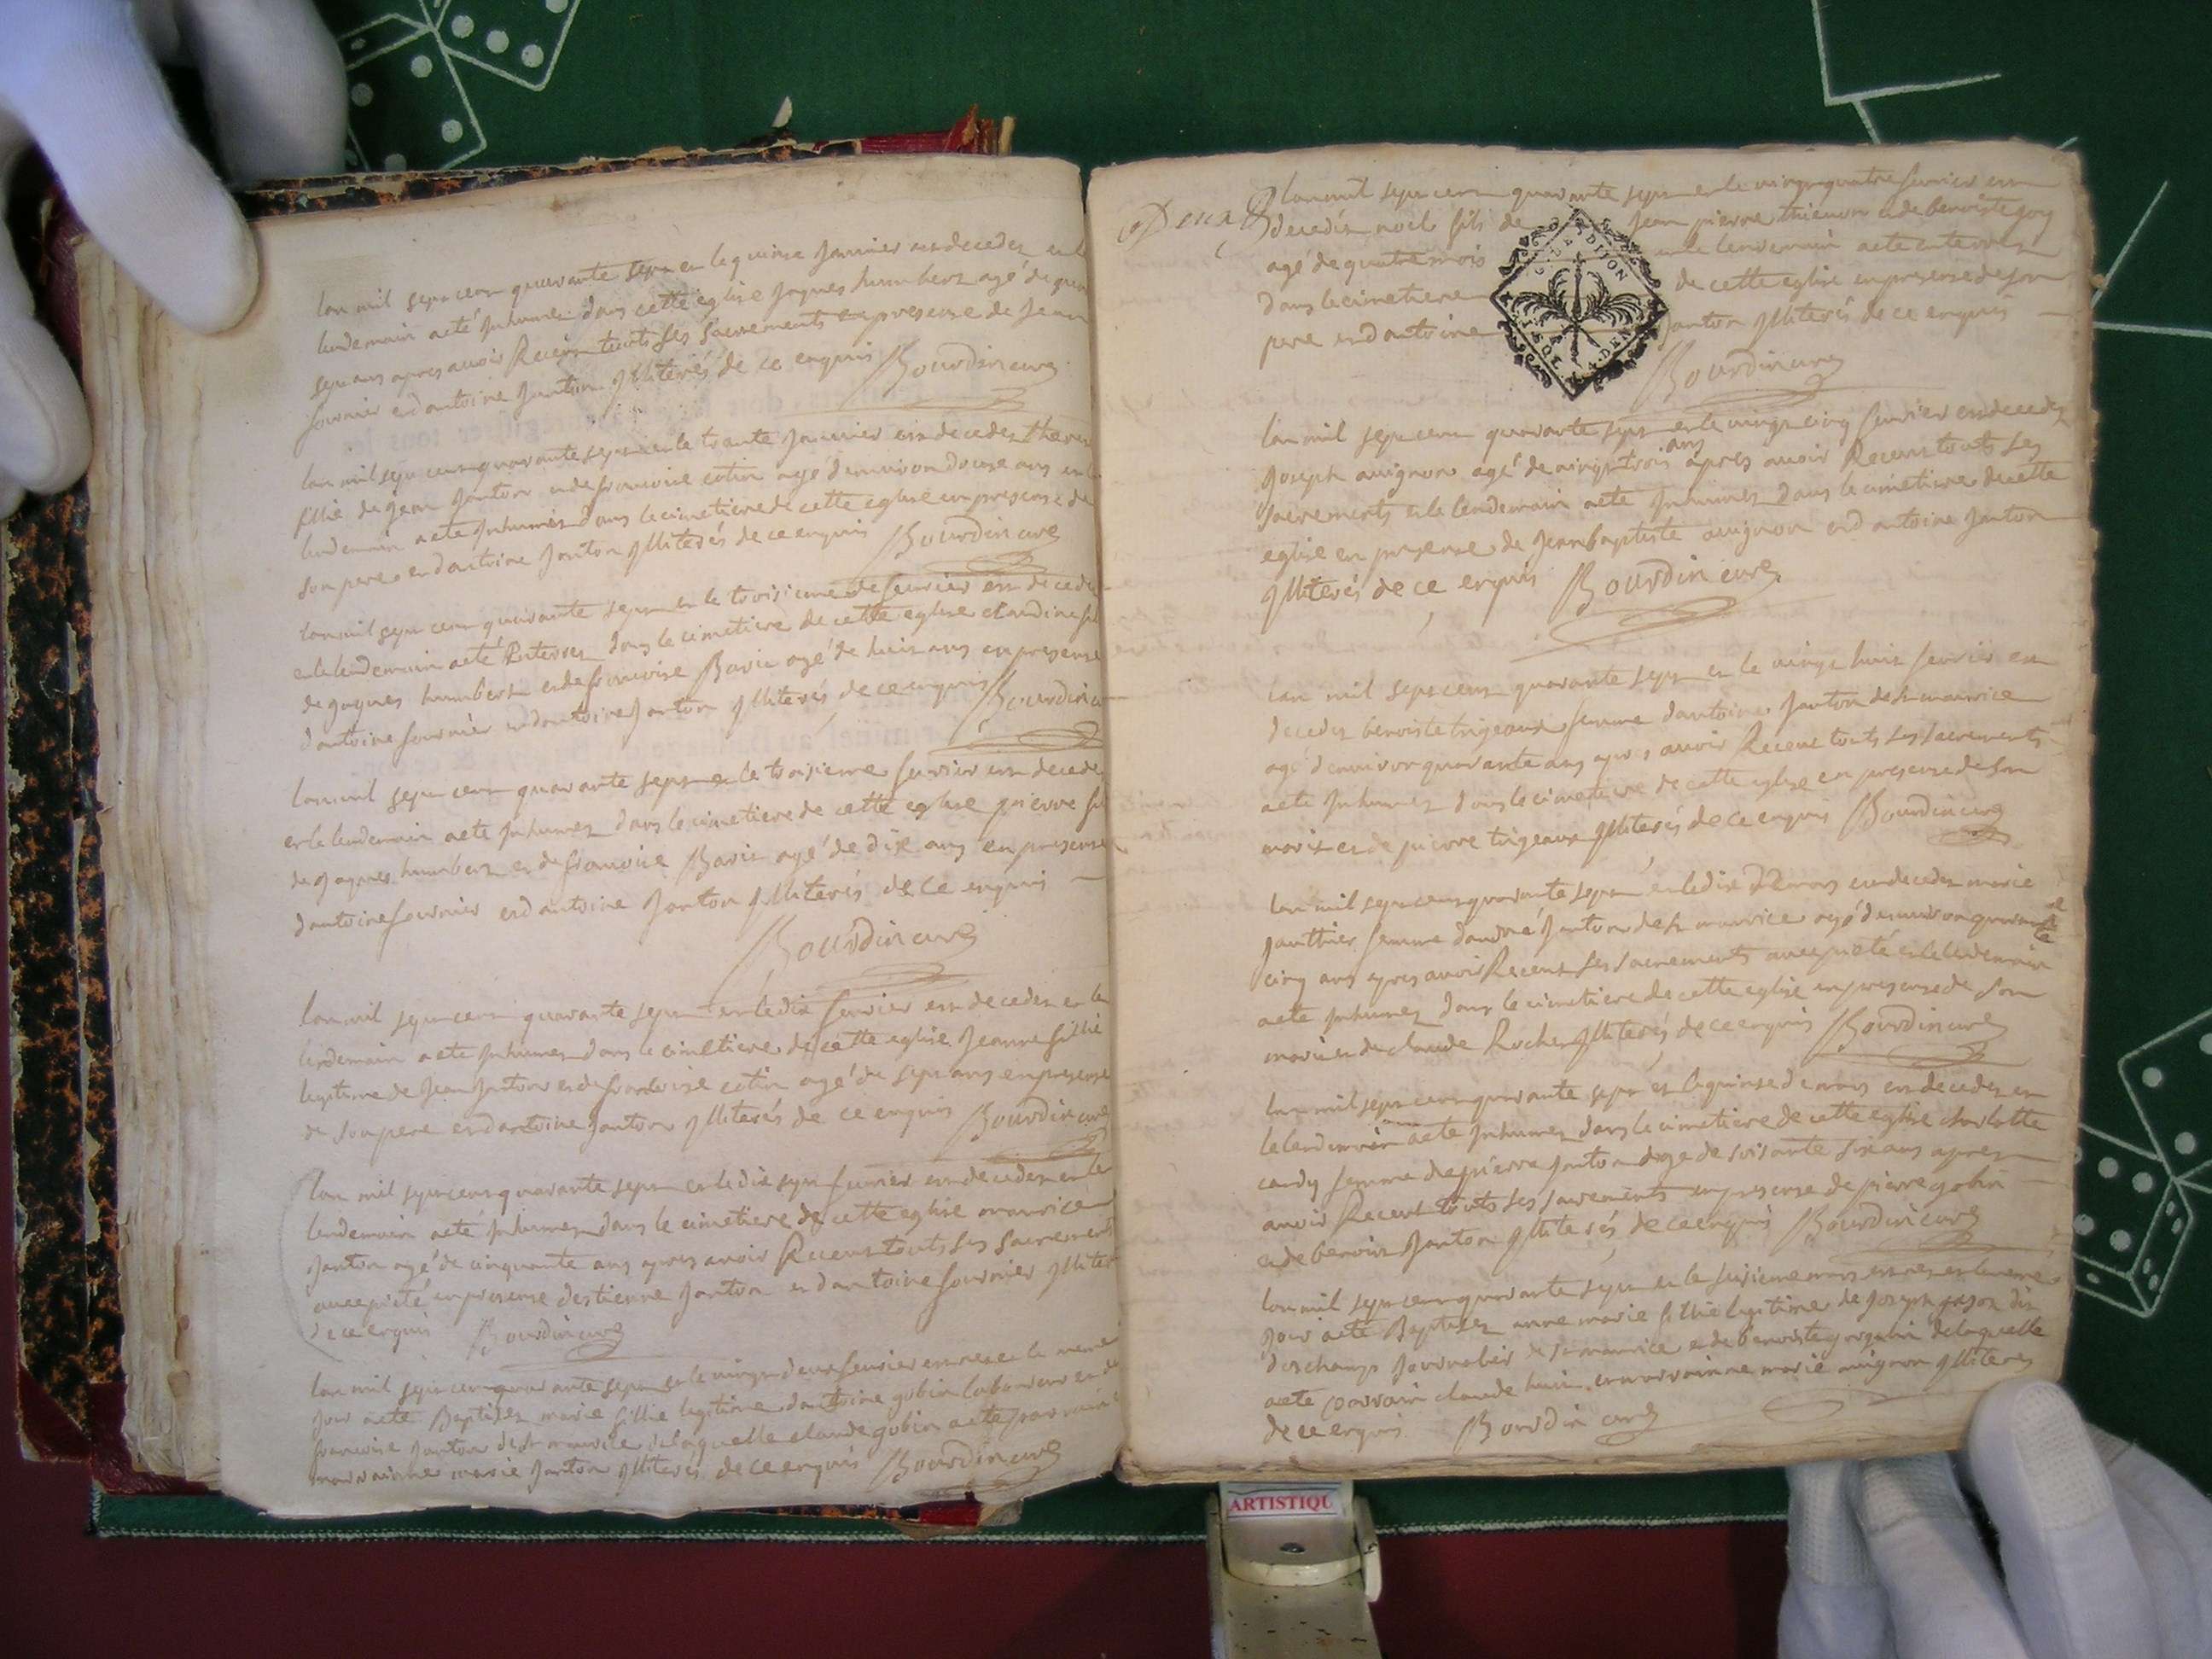 lan mil sept cent quarante sept et le quinse Janvier est decedez et le
lendemain acté Inhumez dans cette eglise Jaques humbert agé de
sept ans apres avoir Receu touts Ses Sacrements en presense de Jean
fournier et dantoine Janton Illiterés de ce enquis Bourdin curé
lan mil sept cent quarante sept et le trante Janvier est decedez
fillie de Jean Janton et de francoise cotin agé denviron douse ans et le
lendemain acte Inhumés dans le cimetiere de cette eglise en presense de
son pere et dantoine Janton Illiterés de ce enquis Bourdin curé
lan mil sept cent quarante sept et le troisieme de fevrier est decedez
et le lendemain acté Enterrez dans le cimetiere de cette eglise claudine
de Jaques humbert et de francoise Barie agé de huit ans en presense
dantoine fournier et dantoine Janton Illiterés de ce enquis Bourdin
lan mil sept cent quarante sept et le troisieme fevrier est decede
et le lendemain acte Inhumez dans le cimetiere de cette eglise pierre
de Jaques humbert et de francoise Barie agé de dix ans en presense
dantoine fournier et dantoine Janton Illiterés de ce enquis
Bourdin curé
lan mil sept cent quarante sept et le dix fevrier est decedez et le
lendemain acte Inhumez dans le cimetiere de cette eglise Jeanne fillie
legitime de Jean Janton et de francoise cotin agé de sept ans en presense
de son pere et dantoine Janton Illiterés de ce enquis Bourdin curé
lan mil sept cent quarante sept et le dix sept fevrier est decedez et le
lendemain acté Inhumez dans le cimetiere de cette eglise maurice
Janton agé de cinquante ans apres avoir Receu touts ses Sacrements
avec pieté en presense destienne Janton et dantoine fournier Illiter
de ce enquis Bourdin curé
lan mil sept cent quarante sept et le vingt deux fevrier est nee et le meme
Jour acté Baptisez marie fillie legitime dantoine gobin laboureur et de
francoise Janton de st maurice de laquelle claude gobin acte parrain
marrainne marie Janton Illiterés de ce enquis Bourdin curé
Deux
lan mil sept cent quarante sept et le vingt quatre fevrier est
decedéz noel fils de Jean pierre thienon et de benoiste
agé de quatre mois et le lendemain acte enterrez
dans le cimetiere de cette eglise en presense de son
pere et dantoine Janton Illiterés de ce enquis
GEN DE LION
SOLS DEN
Bourdin curé
lan mil sept cent quarante sept et le vingt cinq fevrier est decedez
Joseph avignon agé de vingt trois ans apres avoir Receu touts ses
sacrements et le lendemain acte Inhumez dans le cimetiere de cette
eglise en presense de Jean baptiste avignon et dantoine Janton
Illiterés de ce enquis Bourdin curé
lan mil sept cent quarante sept et le vingt huit fevrier est
decedez benoiste trigeaux femme dantoine Janton de st maurice
agé denviron quarante ans apres avoir Receu touts ses sacrements
acte Inhumez dans le cimetiere de cette eglise en presense de son
marit et de pierre trigeaux Illiterés de ce enquis Bourdin curé
lan mil sept cent quarante sept et le dix de mars est decedez marie
gauthier femme dandré Janton de st maurice agé denviron quarante
cinq ans apres avoir Receu ses sacrements avec pieté et le lendemain
acte Inhumez dans le cimetiere de cette eglise en presense de son
mari et de claude Rocher Illiterés de ce enquis Bourdin curé
lan mil sept cent quarante sept et le quinse de mars est decedez et
le lendemain acte Inhumez dans le cimetiere de cette eglise charlotte
cardy femme de pierre Janton agé de soisante six ans apres
avoir Receu touts ses sacrements en presense de pierre gobin
et de benoist Janton Illiterés de ce enquis Bourdin curé
lan mil sept cent quarante sept et le sixieme mars est nee et le meme
Jour acte Baptisez anne marie fillie legitime de Joseph gajon dit
deschamps Journalier de st maurice et de benoiste de laquelle
acte parrain claude et marrainne marie avignon Illiteres
de ce enquis Bourdin curé
ARTISTIQU